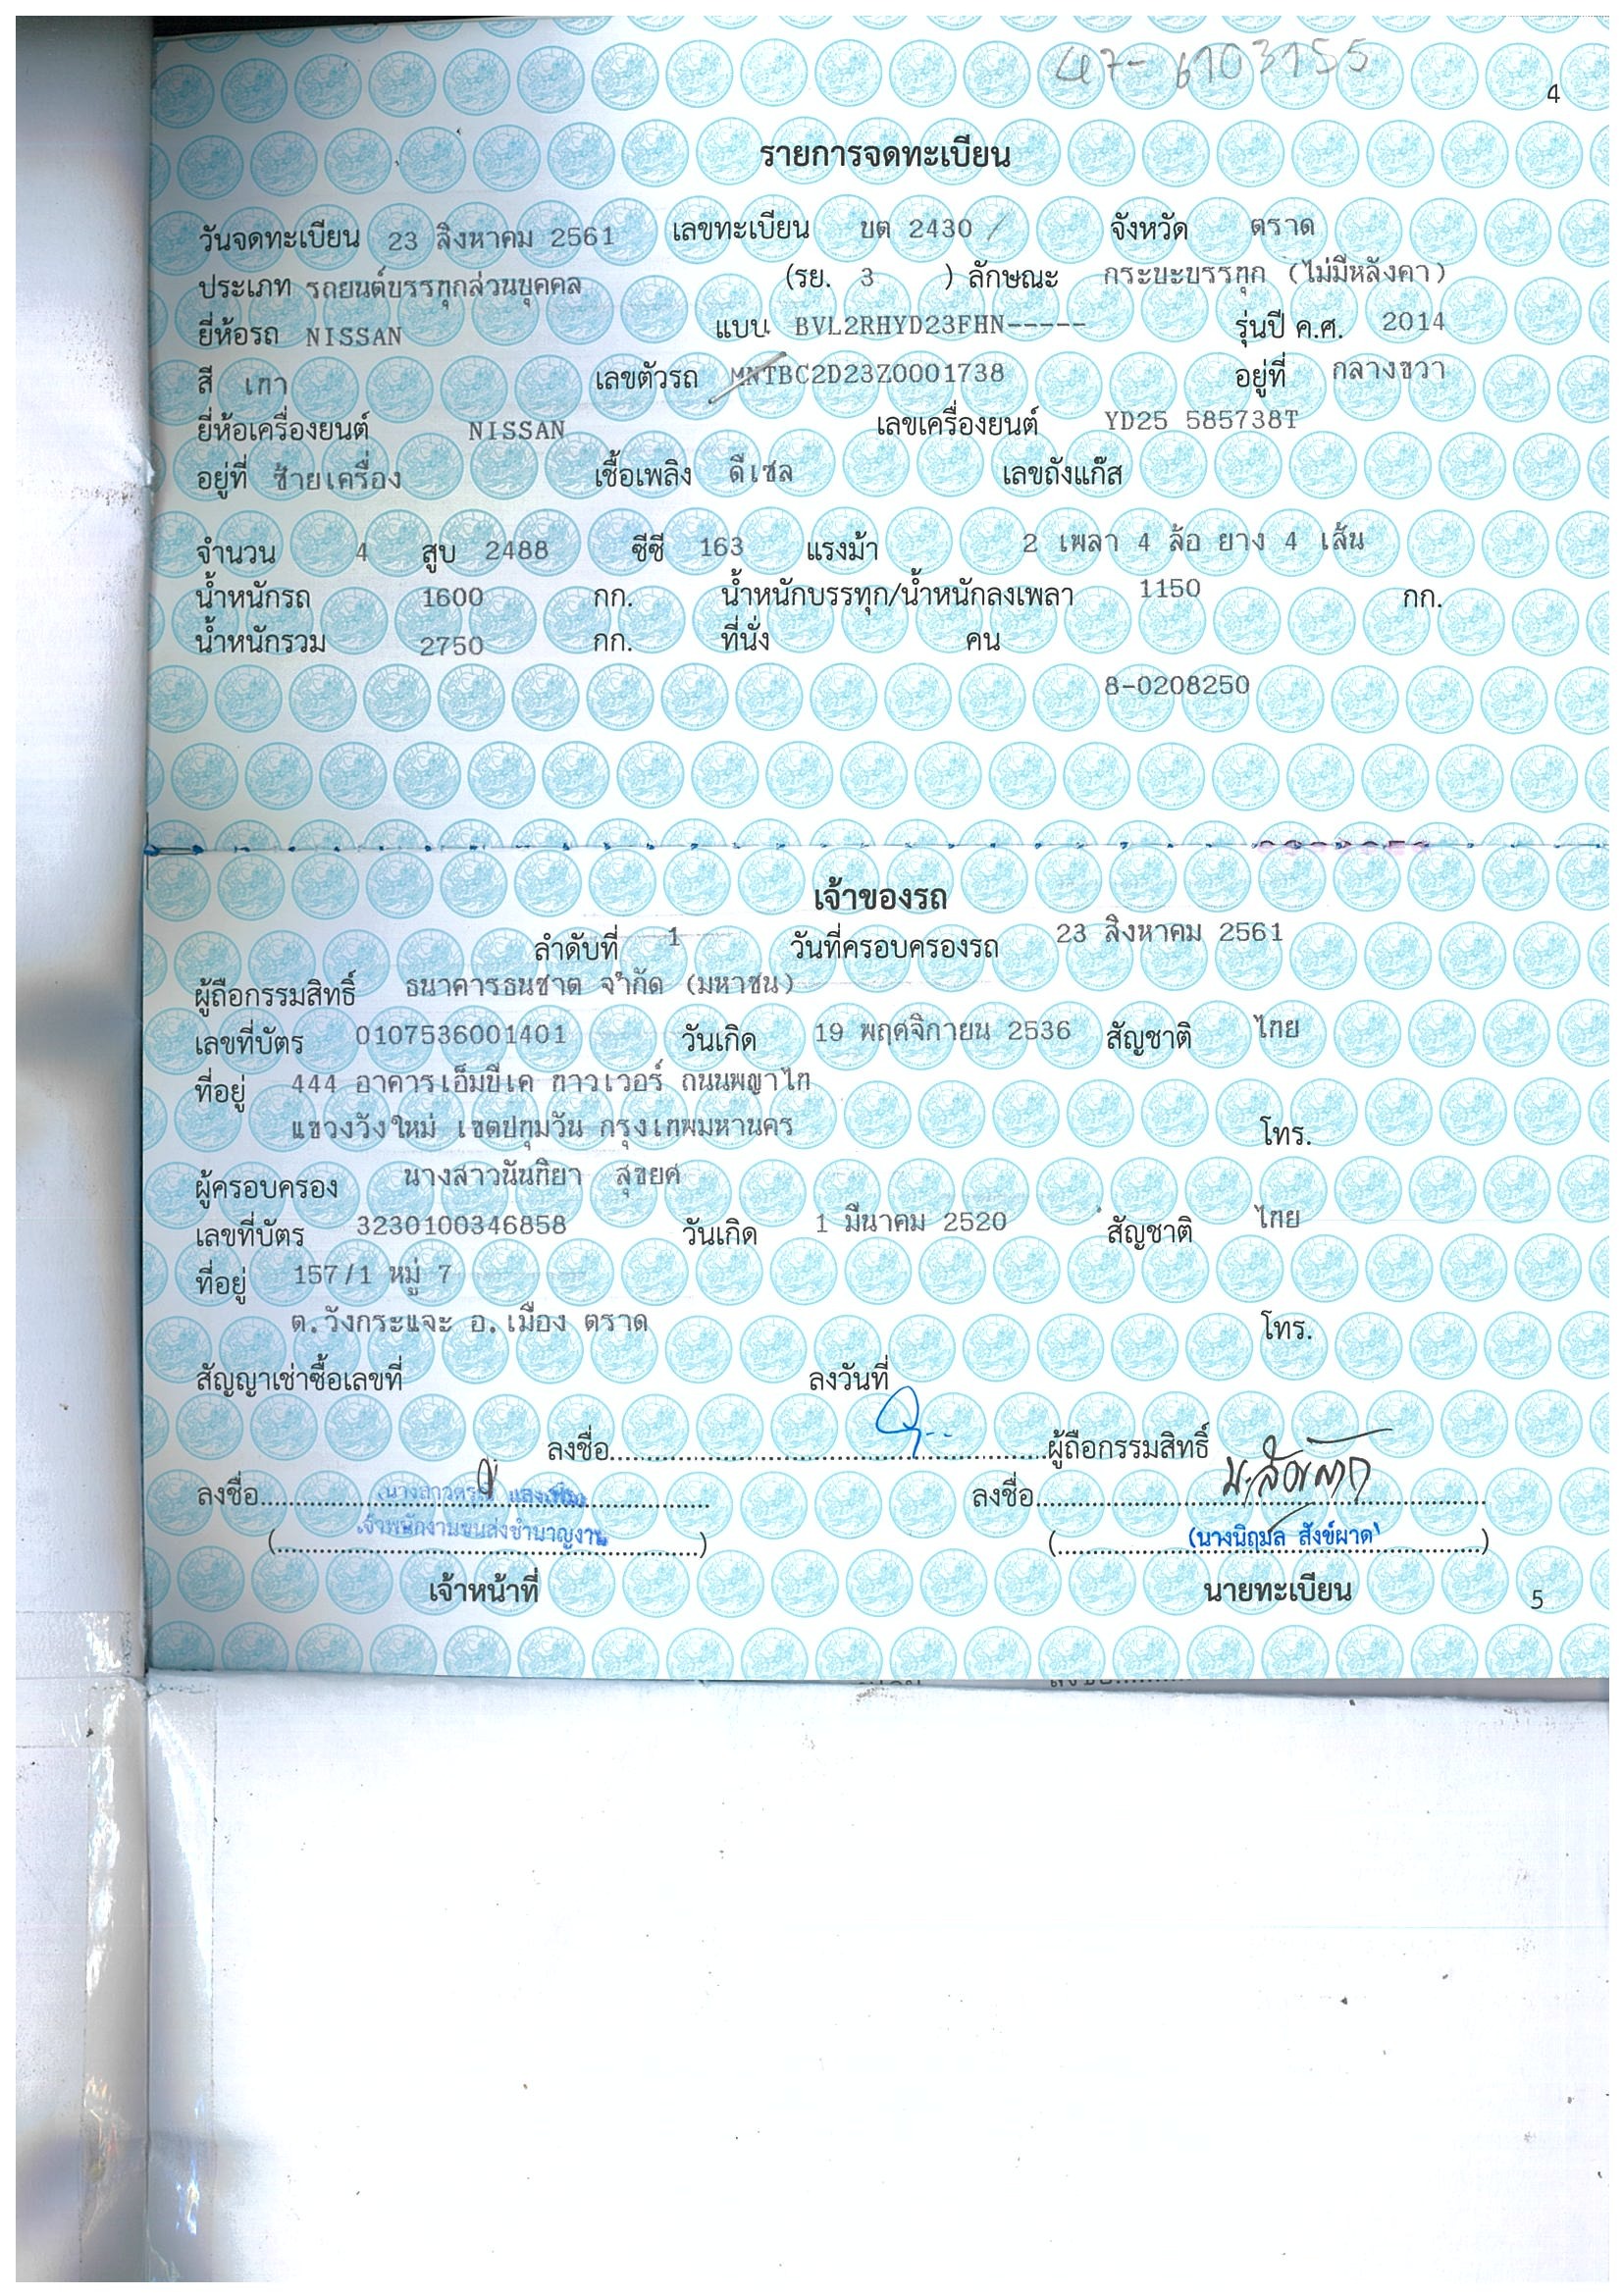 47-6103155
4
รายการจดทะเบียน
วันจดทะเบียน 23 สิงหาคม 2561 เลขทะเบียน บต 2430 / จังหวัด ตราด
ประเภท รถยนต์บรรทุกส่วนบุคคล (รย. 3 ) ลักษณะ กระบะบรรทุก (ไม่มีหลังคา)
ยี่ห้อรถ NISSAN แบบ BVL2RHYD23FHN----- รุ่นปี ค.ศ. 2014
สี เทา เลขตัวรถ MNTBC2D23Z0001738 อยู่ที่ กลางขวา
ยี่ห้อเครื่องยนต์ NISSAN เลขเครื่องยนต์ YD25 585738T
อยู่ที่ ซ้ายเครื่อง เชื้อเพลิง ดีเซล เลขถังแก๊ส
จำนวน 4 สูบ 2488 ซีซี 163 แรงม้า 2 เพลา 4 ล้อ ยาง 4 เส้น
น้ำหนักรถ 1600 กก. น้ำหนักบรรทุก/น้ำหนักลงเพลา 1150 กก.
น้ำหนักรวม 2750 กก. ที่นั่ง คน
8-0208250
เจ้าของรถ
ลำดับที่ 1 วันที่ครอบครองรถ 23 สิงหาคม 2561
ผู้ถือกรรมสิทธิ์ ธนาคารธนชาต จำกัด (มหาชน)
เลขที่บัตร 0107536001401 วันเกิด 19 พฤศจิกายน 2536 สัญชาติ ไทย
ที่อยู่ 444 อาคารเอ็มบีเค ทาวเวอร์ ถนนพญาไท
แขวงวังใหม่ เขตปทุมวัน กรุงเทพมหานคร โทร.
ผู้ครอบครอง นางสาวนันทิยา สุขยศ
เลขที่บัตร 3230100346858 วันเกิด 1 มีนาคม 2520 สัญชาติ ไทย
ที่อยู่ 157/1 หมู่ 7
ต.วังกระแจะ อ.เมือง ตราด โทร.
สัญญาเช่าซื้อเลขที่ ลงวันที่
ลงชื่อ ผู้ถือกรรมสิทธิ์
ลงชื่อ ลงชื่อ
เจ้าพนักงานขนส่งชำนาญงาน (นางนิฤมล สังข์ผาด)
เจ้าหน้าที่ นายทะเบียน
5